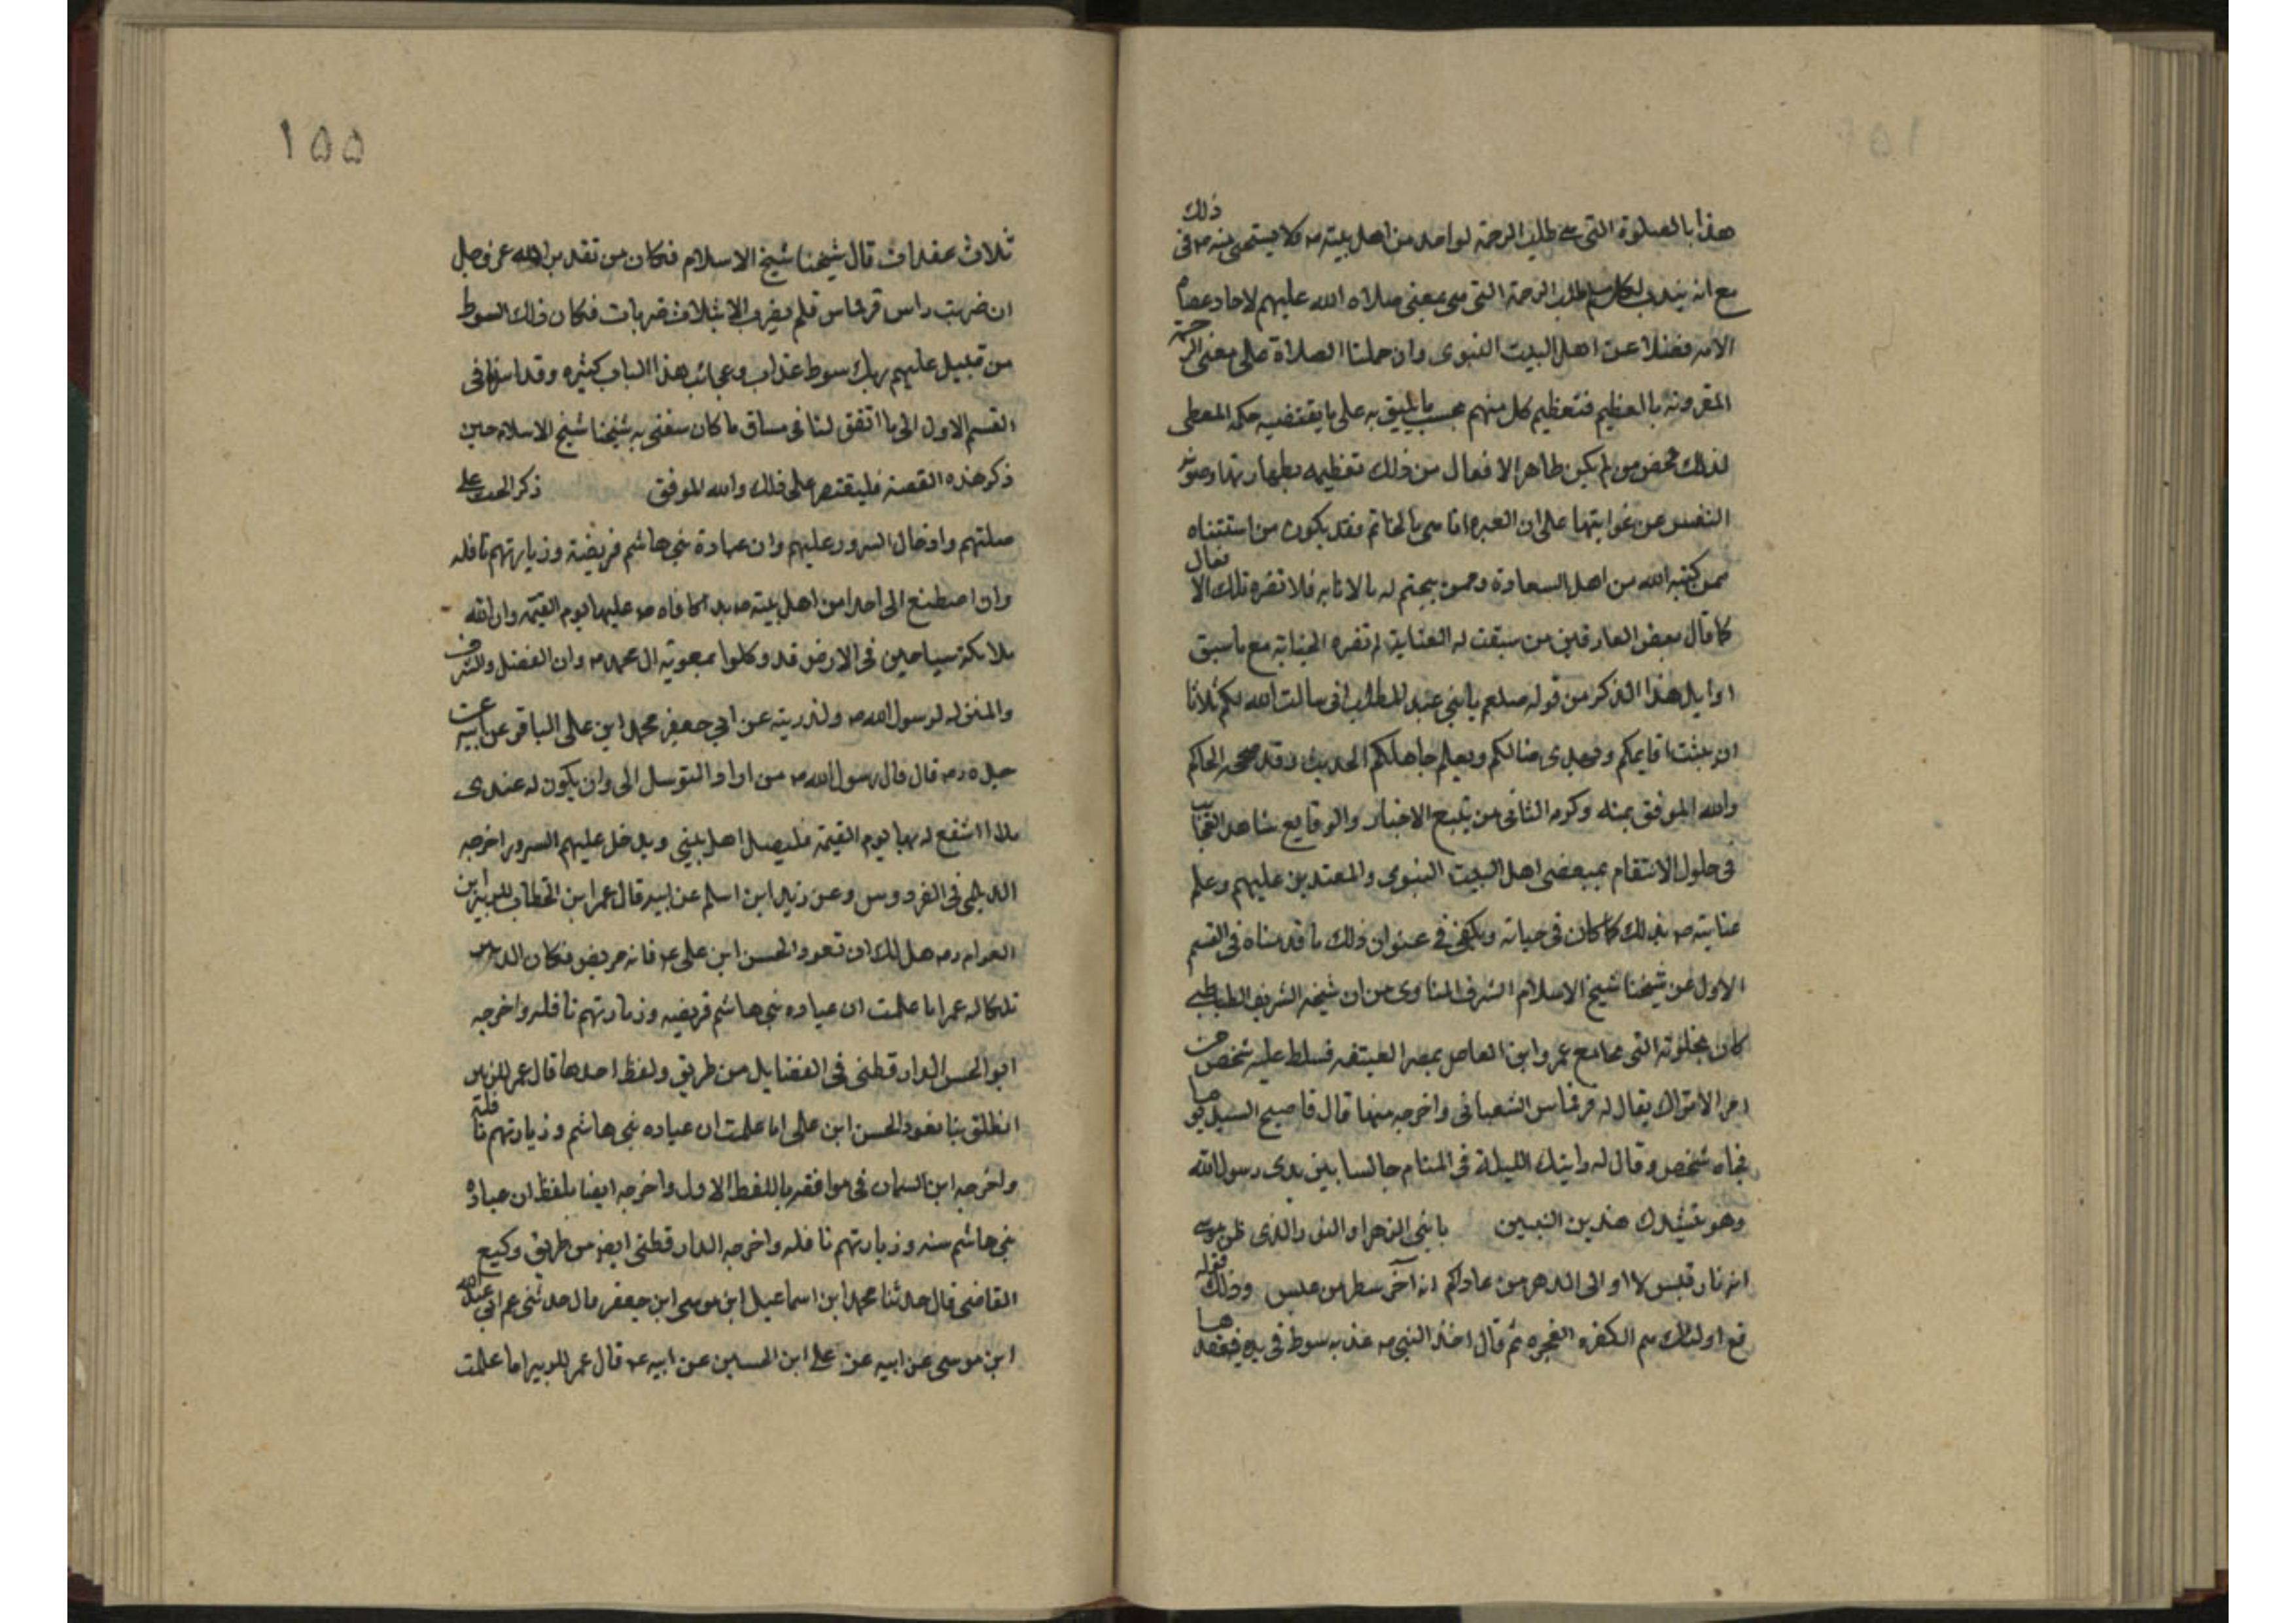 ذلك
هذا بالصلوة التى هى طلب الرحمة لواحد من اهل بيته ص فلا يستحى منه ص فى
مع انه يندب لكل مسلم طلب الرحمة التى هى بمعنى صلاة الله عليهم لاحاد عصاة
الامة فضلا عن اهل البيت النبوى وان حملنا الصلاة على معنى الرحمة
المقرونة بالتعظيم فتعظيم كل منهم بحسب ما يليق به على ما يقتضيه حكم المعطى
لذلك فمن لم يكن طاهر الافعال من ذلك تعظيمه بطهارتها وصون
النفس عن غوايتها على ان العبرة انما هى بالخاتم فقد يكون من استثناه
ممن كتبه الله من اهل السعادة وممن يختم له بالانابة فلا تضره تلك الافعال
كما قال بعض العارفين من سبقت له العناية لم تضره الجناية مع ما سبق
اوايل هذا الذكر من قوله صلعم يا بنى عبد المطلب انى سالت الله لكم ثلاثا
ان يثبت قايمكم ويهدى ضالكم ويعلم جاهلكم الحديث وقد صححه الحاكم
والله الموفق بمنه وكرمه الثانى من يتبع الاخبار والوقايع شاهد العجاب
فى حلول الانتقام بمبغضى اهل البيت النبوى والمعتدين عليهم وعلم
عنايته ص بذلك كما كان فى حياته ويكفى فى عنوان ذلك ما قدمناه فى القسم
الاول عن شيخنا شيخ الاسلام الشرف المناوى من ان شيخه الشريف الطباطبى
كان بخلوته التى بجامع عمرو ابن العاص بمصر العتيقه فسلط عليه شخص من
امر الاتراك يقال له قرقماس الشعبانى واخرجه منها قال فاصبح السيد يوما
فجاه شخص وقال له رايتك الليلة فى المنام جالسا بين يدى رسول الله
وهو ينشدك هذين البيتين يا بنى الزهرا والنور الذى ظن موسى
انه نار قبس لا اوالى الدهر من عاداكم انه آخر سطر من عبس وذلك قوله
تع اولئك هم الكفرة الفجره ثم قال اخذ النبى ص عذبة سوط فى يده فعقدها
١٥٥
ثلاث عقدات قال شيخنا شيخ الاسلام فكان من تقدير الله عز وجل
ان ضربت راس قرقماس فلم يضرب الا بثلاث ضربات فكان ذلك السوط
من قبيل عليهم ربك سوط عذاب وعجائب هذا الباب كثيره وقد اشرنا فى
القسم الاول الى ما اتفق لنا فى مساق ما كان سعى به شيخنا شيخ الاسلام حين
ذكر هذه القصة فليقتصر على ذلك والله الموفق ذكر الحث على
صلتهم وادخال السرور عليهم وان عيادة بنى هاشم فريضة وزيارتهم نافله
وان اصطنع الى احد من اهل بيته ص يدا كافاه ص عليها يوم القيمه وان لله
ملائكة سياحين فى الارض قد وكلوا بمعونة ال محمد ص وان الفضل والشرف
والمنزله لرسول الله ص ولذريته عن ابي جعفر محمد ابن على الباقر عن ابيه عن
جده رم قال قال رسول الله ص من اراد التوسل الى وان يكون له عندى
يدا اشفع له بها يوم القيمة فليصل اهل بيتى ويدخل عليهم السرور اخرجه
الديلمى فى الفردوس وعن زيد ابن اسلم عن ابيه قال عمر ابن الخطاب للزبير ابن
العوام رم هل لك ان تعود الحسن ابن على عم فانه مريض فكان الزبير
تلكا له عمر اما علمت ان عياده بنى هاشم فريضه وزيارتهم نافله واخرجه
ابو الحسن الدارقطنى فى الفضايل من طريق ولفظ احدها قال عمر للزبير
انطلق بنا نعود الحسن ابن على اما علمت ان عياده بنى هاشم وزيارتهم نافلة
واخرجه ابن السمان فى موافقه باللفظ الاول واخرجه ايضا بلفظ ان عيادة
بنى هاشم سنه وزيارتهم نافله واخرجه الدارقطنى ايضا من طريق وكيع
القاضى قال حدثنا محمد ابن اسماعيل ابن موسى ابن جعفر قال حدثنى عم ابى عبد الله
ابن موسى عن ابيه عن على ابن الحسين عن ابيه عم قال عمر للزبير اما علمت